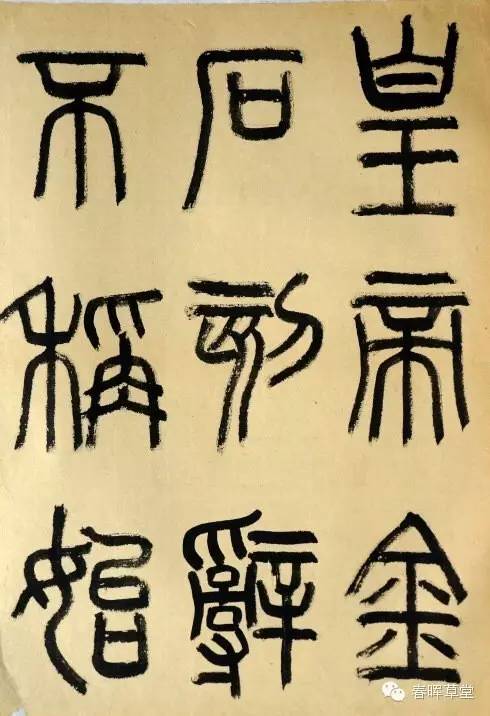 皇帝金
石刻辭
不稱始
春晖草堂